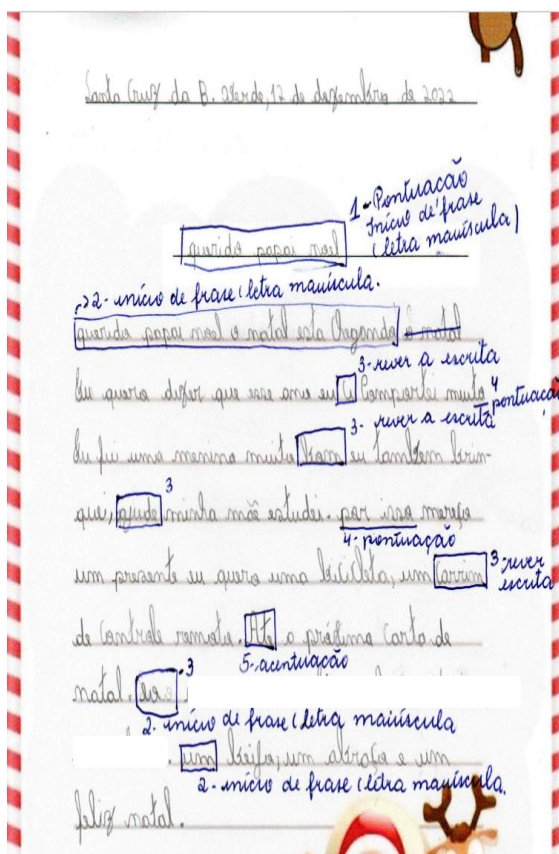 Santa Cruz da B. Verde, 12 de dezembro de 2022
1-Pontuação
Início de frase
(letra maiúscula)
querido papai noel
→2- início de frase (letra maiúscula.
querido papai noel o natal está chegando o natal
3-rever a escrita
Eu quero dizer que ese ano eu comportei muito
4
pontuação
3- rever a escrita
Eu fui uma menina muito bom eu também brin-
3
quei, ajudei minha mãe estudei. por isso mereço
4-pontuação
um presente eu quero uma bicicleta, um carrim
3-rever
escrita
de controle remoto. Ate o próximo carta de
5-acentuação
natal.
3
2- início de frase (letra maiúscula
um beijo, um abraço e um
2-início de frase (letra maiúscula.
feliz natal.